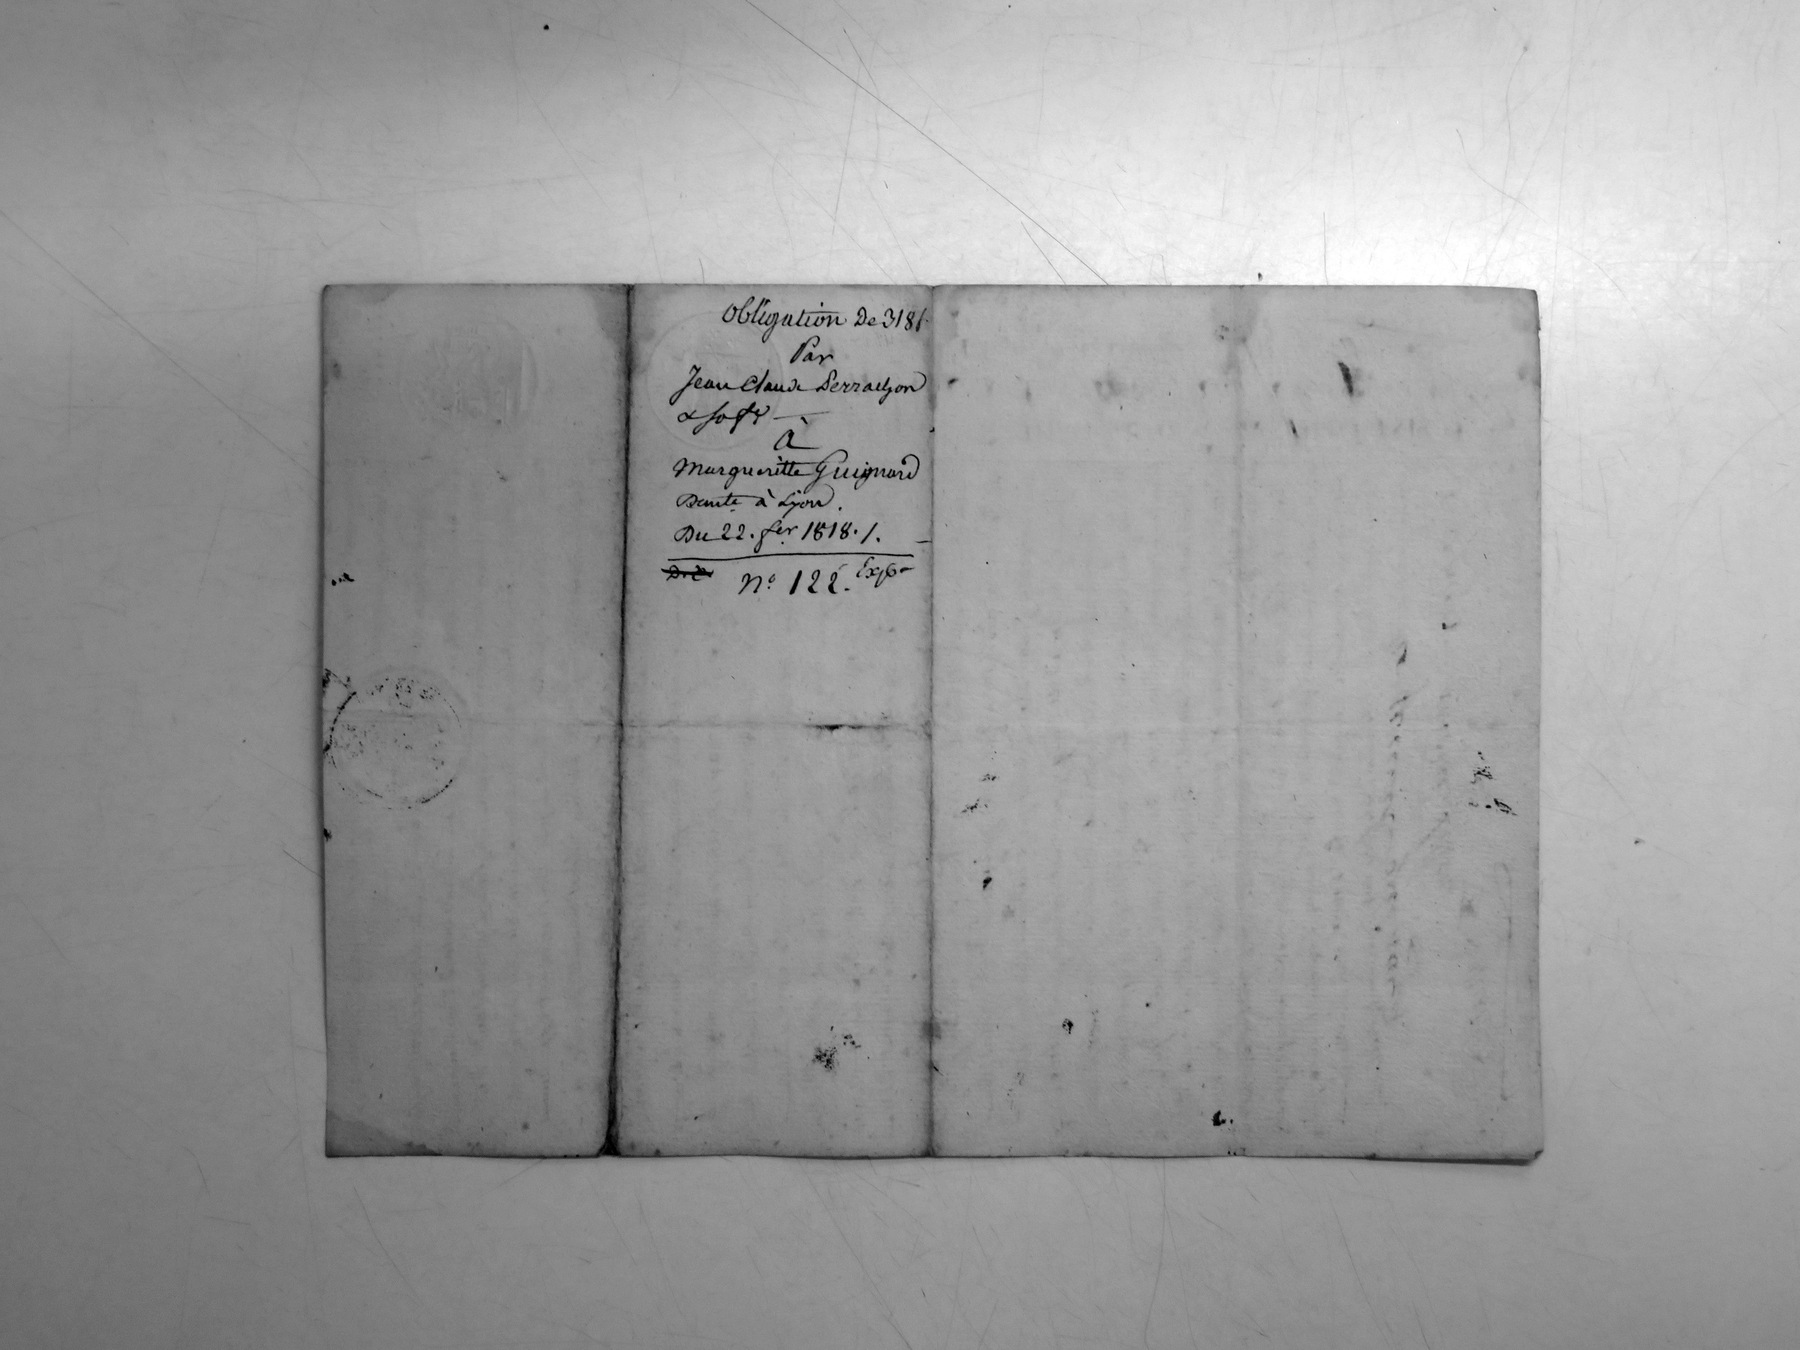 Obligation De 318f.
Par
Jean Claude Perrachon
& sa fe
à
Marguerite Guignard
Demte. à Lyon.
Du 22. fer. 1818. /.
No. 122. Expon